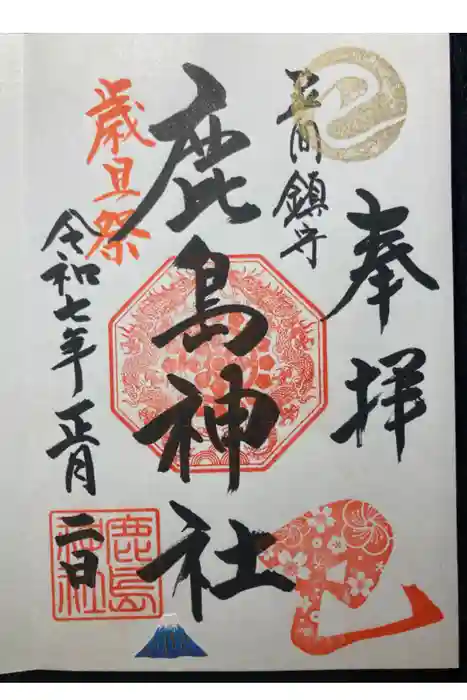 奉拝
平間鎮守
鹿島神社
歳旦祭
令和七年正月二日
鹿島
神社